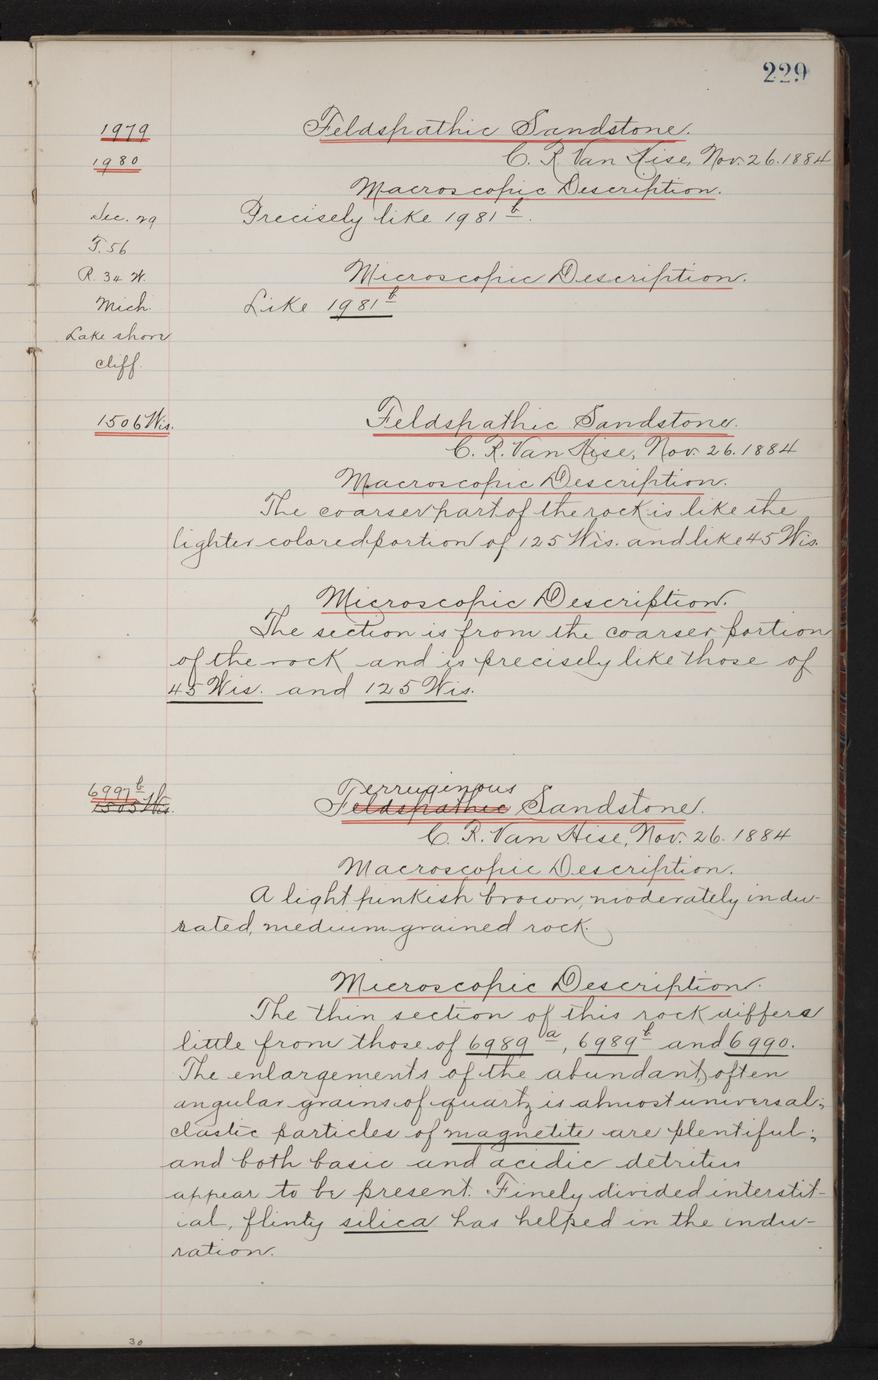 229
1979
Feldspathic Sandstone.
1980
C. R. Van Hise, Nov. 26. 1884
Macroscopic Description.
Sec. 29
Precisely like 1981 b.
T. 56
R. 34 W.
Microscopic Description.
Mich.
Like 1981 b
Lake shore
cliff.
1506 Wis.
Feldspathic Sandstone.
C. R. Van Hise, Nov. 26. 1884
Macroscopic Description.
The coarser part of the rock is like the
lighter colored portion of 125 Wis. and like 45 Wis.
Microscopic Description.
The section is from the coarser portion
of the rock and is precisely like those of
45 Wis. and 125 Wis.
6997 b
1505 Wis.
Ferruginous
Feldspathic Sandstone.
C. R. Van Hise, Nov. 26. 1884
Macroscopic Description.
A light pinkish brown, moderately indu-
rated, medium grained rock.
Microscopic Description.
The thin section of this rock differs
little from those of 6989 a, 6989 b and 6990.
The enlargements of the abundant, often
angular grains of quartz is almost universal;
clastic particles of magnetite are plentiful;
and both basic and acidic detritus
appear to be present. Finely divided interstit-
ial, flinty silica has helped in the indu-
ration.
30